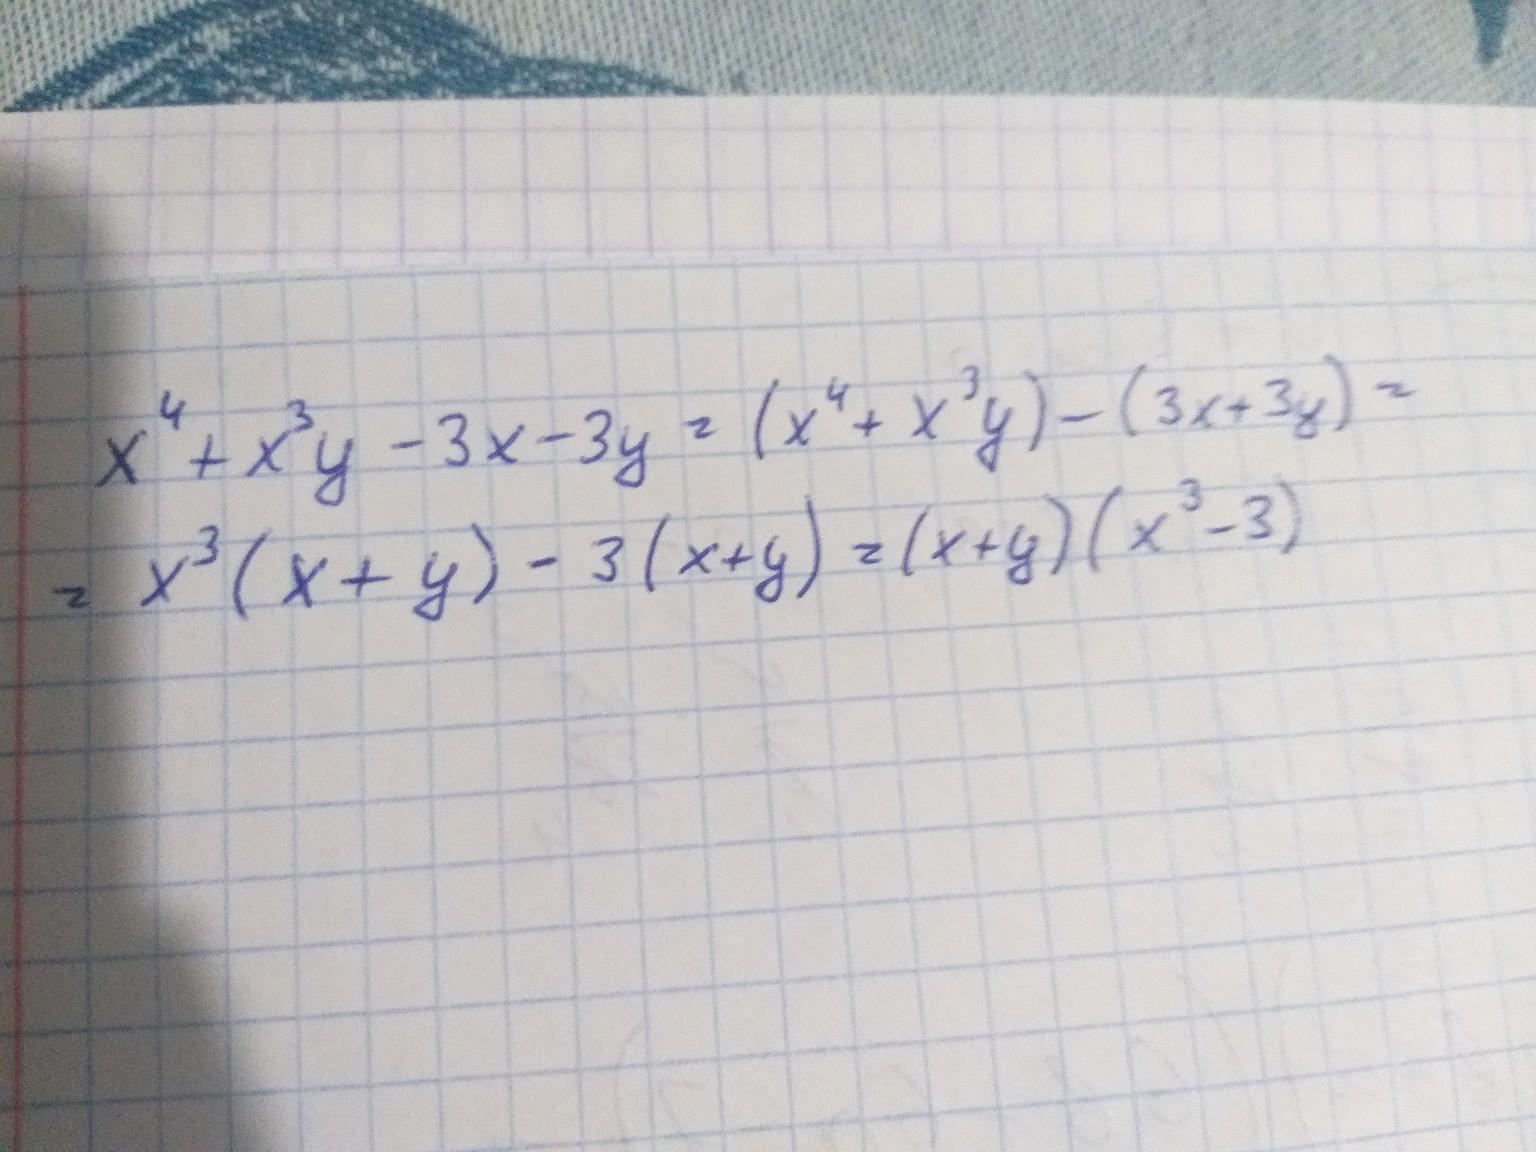 x⁴ + x³y - 3x - 3y = (x⁴ + x³y) - (3x + 3y) =
= x³(x + y) - 3(x + y) = (x + y)(x³ - 3)